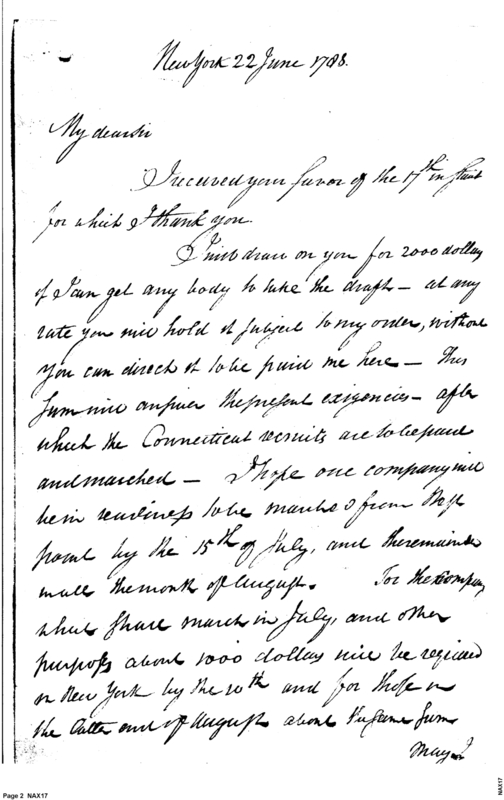 New York 22 June 1788.
My dear sir
I received your favor of the 17th instant
for which I thank you.
I will draw on you for 2000 dollars
if I can get any body to take the draft — at any
rate you will hold it subject to my order, without
you can direct it to be paid me here — This
sum will answer the present exigencies — after
which the Connecticut recruits are to be paid
and marched — I hope one company will
be in readiness to be marched from West
point by the 15th of July, and the remainder
in all the month of August. For the company
that shall march in July, and other
purposes about 1000 dollars will be required
in New York by the 10th and for those in
the latter end of August about the same sum
may
Page 2 NAX17
NAX17